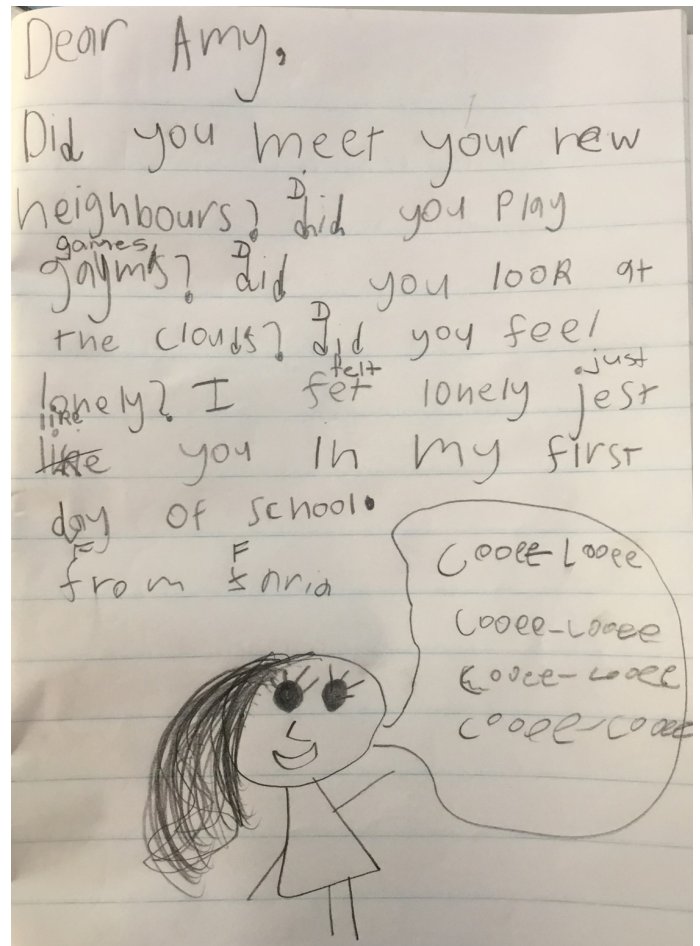 Dear Amy,
Did you meet your new
neighbours? D did you play
games
gayms? D did you look at
the clouds? D did you feel
felt just
lonely? I fet lonely jest
like
like you in my first
day of school.
F F
from
Cooee-Looee
Cooee-Looee
Cooee-Looee
Cooee-Cooee